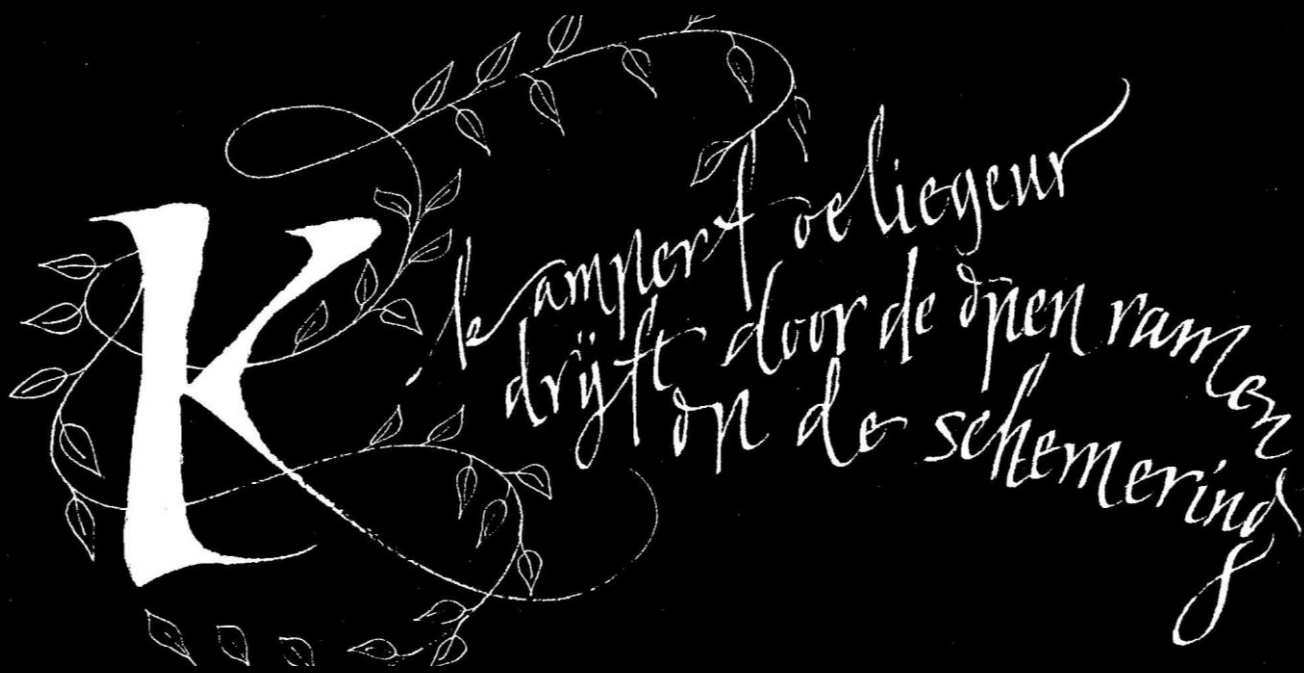 K
kamperfoeliegeur
drijft door de open ramen
op de schemering